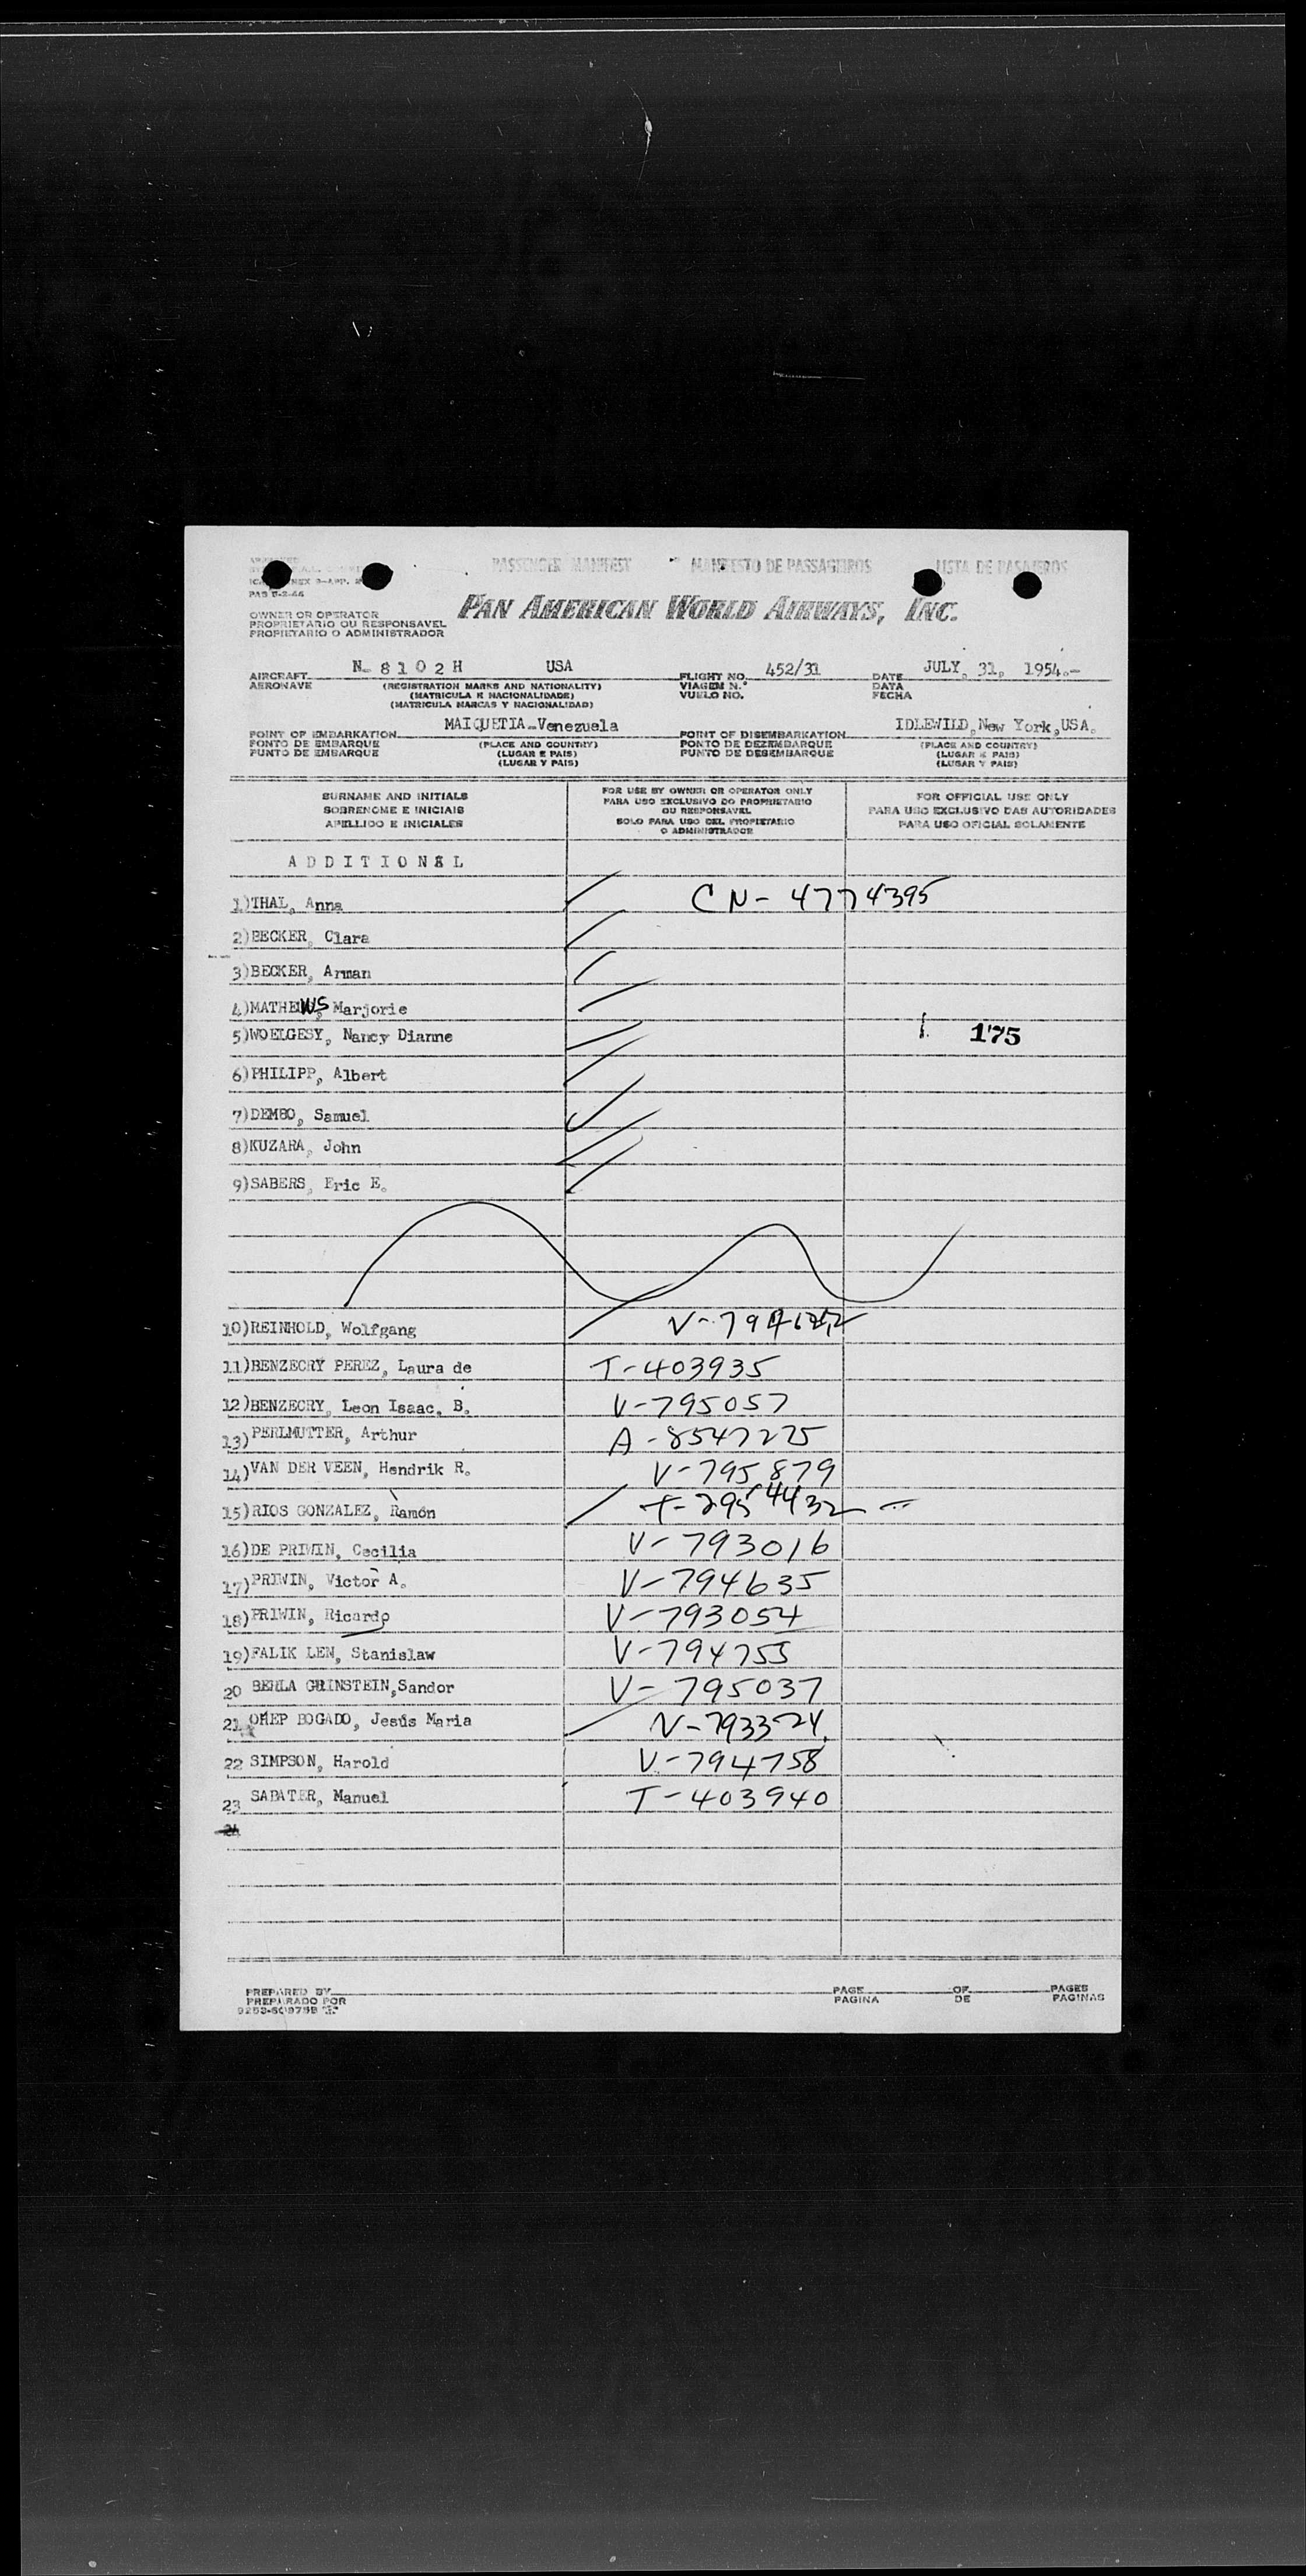 PASSENGER MANIFEST MANIFESTO DE PASSAGEIROS LISTA DE PASAJEROS
PAN AMERICAN WORLD AIRWAYS, INC.
OWNER OR OPERATOR
PROPRIETARIO OU RESPONSAVEL
PROPIETARIO O ADMINISTRADOR
AIRCRAFT N- 8 1 0 2 H USA FLIGHT NO. 452/31 DATE JULY, 31, 1954.-
AERONAVE (REGISTRATION MARKS AND NATIONALITY) VIAGEM N.° DATA
(MATRICULA E NACIONALIDADE) VUELO NO. FECHA
(MATRICULA MARCAS Y NACIONALIDAD)
POINT OF EMBARKATION MAIQUETIA-Venezuela POINT OF DISEMBARKATION IDLEWILD,New York,USA.
PONTO DE EMBARQUE (PLACE AND COUNTRY) PONTO DE DEZEMBARQUE (PLACE AND COUNTRY)
PUNTO DE EMBARQUE (LUGAR E PAIS) PUNTO DE DESEMBARQUE (LUGAR E PAIS)
(LUGAR Y PAIS) (LUGAR Y PAIS)
SURNAME AND INITIALS
SOBRENOME E INICIAIS
APELLIDO E INICIALES
FOR USE BY OWNER OR OPERATOR ONLY
PARA USO EXCLUSIVO DO PROPRIETARIO
OU RESPONSAVEL
SOLO PARA USO DEL PROPIETARIO
O ADMINISTRADOR
FOR OFFICIAL USE ONLY
PARA USO EXCLUSIVO DAS AUTORIDADES
PARA USO OFICIAL SOLAMENTE
A D D I T I O N A L
1)THAL, Anna CN- 4774395
2)BECKER, Clara
3)BECKER, Arman
4)MATHEWS, Marjorie
5)WOELGESY, Nancy Dianne 175
6)PHILIPP, Albert
7)DEMBO, Samuel
8)KUZARA, John
9)SABERS, Eric E.
10)REINHOLD, Wolfgang
11)BENZECRY PEREZ, Laura de T-403935
12)BENZECRY, Leon Isaac. B. V-795057
13)PERLMUTTER, Arthur A-8547275
14)VAN DER VEEN, Hendrik R. V-795879
15)RIOS GONZALEZ, Ramón
16)DE PRIWIN, Cecilia V-793016
17)PRIWIN, Victor A. V-794635
18)PRIWIN, Ricardo V-793054
19)FALIK LEN, Stanislaw V-794755
20 BEHLA GRINSTEIN,Sandor V-795037
21 OHEP BOGADO, Jesús Maria V-793324
22 SIMPSON, Harold V-794758
23 SABATER, Manuel T-403940
24
PREPARED BY PAGE OF PAGES
PREPARADO POR PAGINA DE PAGINAS